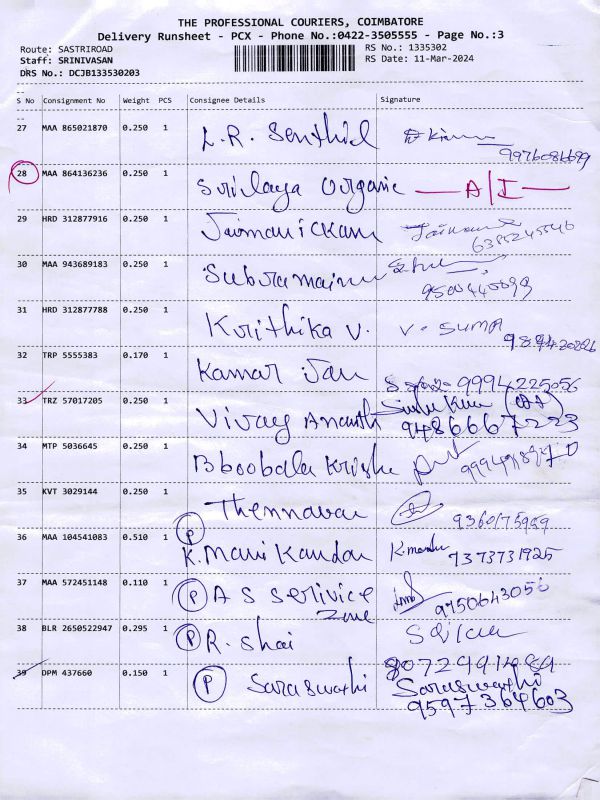 THE PROFESSIONAL COURIERS, COIMBATORE
Delivery Runsheet - PCX - Phone No.:0422-3505555 - Page No.:3
Route: SASTRIROAD RS No.: 1335302
Staff: SRINIVASAN RS Date: 11-Mar-2024
DRS No.: DCJB133530203
S No Consignment No Weight PCS Consignee Details Signature
27 MAA 865021870 0.250 1 L.R. Senthil
28 MAA 864136236 0.250 1 Srilaya Organic A/I
29 HRD 312877916 0.250 1 Jaimanickam
6385245546
30 MAA 943689183 0.250 1
31 HRD 312877788 0.250 1 Krithika V. V. SUMA
32 TRP 5555383 0.170 1 Kamar Jan 9994225056
33 TRZ 57017205 0.250 1 Vivay Ananth
9486667223
34 MTP 5036645 0.250 1 Bboobala Krishe
35 KVT 3029144 0.250 1 Thennavan
36 MAA 104541083 0.510 1 P K. Mani Kandan 7373731925
37 MAA 572451148 0.110 1 P A S Serivice Zone 9750643056
38 BLR 2650522947 0.295 1 P R. Shai
39 DPM 437660 0.150 1 P Saraswathi Saraswathi
9597364603